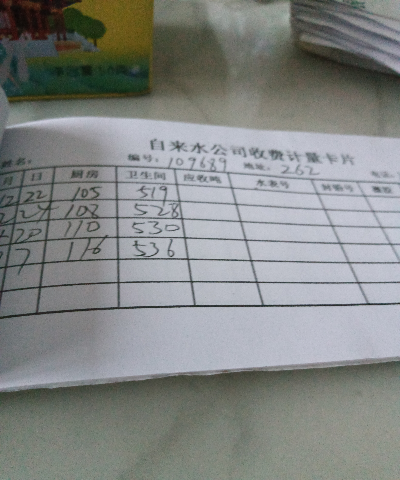 自来水公司收费计量卡片
姓名: 编号: 109689 地址: 262 电话:
月 日 厨房 卫生间 应收吨 水表号 封铅号
12 22 105 519
2 24 108 528
4 20 110 530
7 116 536